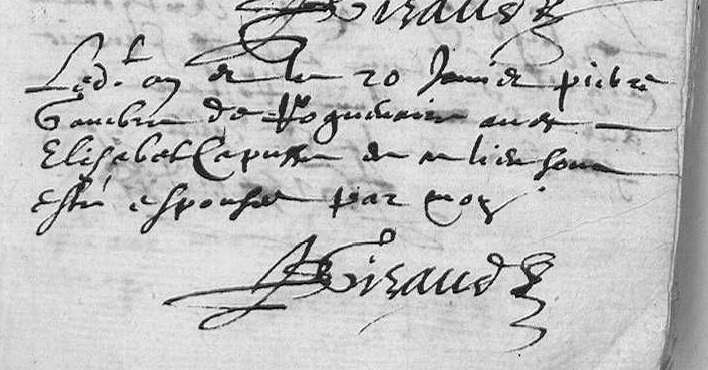 Giraud
Led. an et le 20 Janvier pierre
Gaubert de avec
Elisabet de ce lieu sont
esté espousés par moy
Giraud